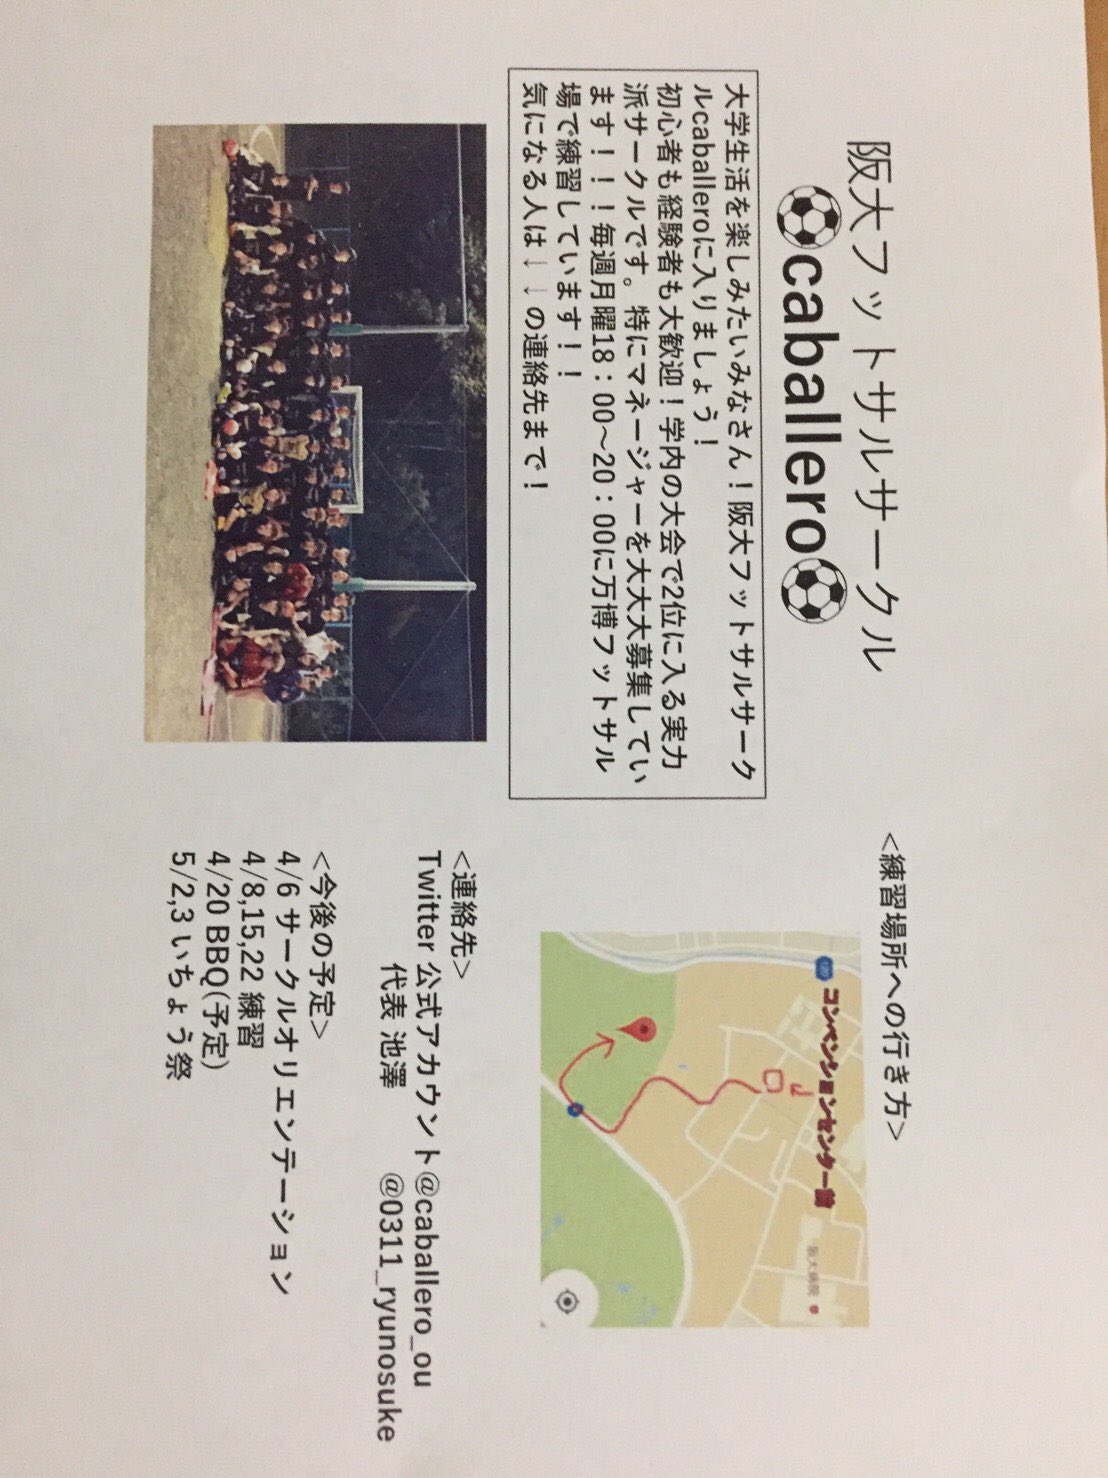 阪大フットサルサークル
caballero
大学生活を楽しみたいみなさん！阪大フットサルサーク
ルcaballeroに入りましょう！
初心者も経験者も大歓迎！学内の大会で2位に入る実力
派サークルです。特にマネージャーを大大大募集してい
ます！！！毎週月曜18：00～20：00に万博フットサル
場で練習しています！！
気になる人は↓↓の連絡先まで！
<練習場所への行き方>
コンベンションセンター前
阪大病院
<連絡先>
Twitter 公式アカウント@caballero_ou
代表 池澤 @0311_ryunosuke
<今後の予定>
4/6 サークルオリエンテーション
4/8,15,22 練習
4/20 BBQ(予定)
5/2,3 いちょう祭